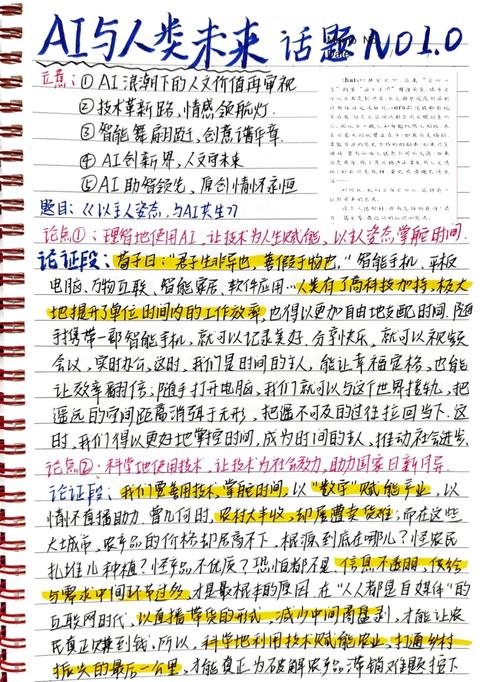 AI与人类未来 话题NO1.0
立意: ① AI浪潮下的人文价值再审视
② 技术革新路,情感领航灯.
③ 智能舞翩跹,创意谱华章.
④ AI创新界,人文守未来
⑤ AI助智锐先,原创情怀永恒
题目:《以主人姿态,与AI共生》
论点①: 理智地使用AI,让技术为人生赋能,以主人姿态,掌舵时间.
论证段: 荀子曰:"君子生非异也,善假于物也."智能手机,平板
电脑,万物互联,智能家居,软件应用…人类有了高科技加持,极大
地提升了单位时间内的工作效率,也得以更加自由地支配时间.随
手携带一部智能手机,就可以记录美好,分享快乐,就可以视频
会议,实时办公,这时,我们是时间的主人,能让幸福定格,也能
让效率翻倍;随手打开电脑,我们就可以与这个世界接轨,把
遥远的空间距离消弭于无形,把遥不可及的过往拉回当下.这
时,我们得以更好地掌管时间,成为时间的主人,推动社会进步.
论点②: 科学地使用技术,让技术为社会效力,助力国家日新月异.
论证段: 我们要善用技术,掌舵时间,以"数字"赋能产业,以
情怀直播助力.曾几何时,农村大丰收,却屡遭卖货难;而在这些
大城市,农产品的价格却居高不下,根源到底在哪儿?怪农民
扎堆儿种植?怪产品不优质?恐怕都不是.信息不透明,供给
与需求中间环节过多,才是最根本的原因.在"人人都是自媒体"的
互联网时代,以直播带货的形式,减少中间商盘剥,才能让农
民真正赚到钱.所以,科学地利用技术赋能农业,打通乡村
振兴的最后一公里,才能真正为破解农产品滞销难题按下